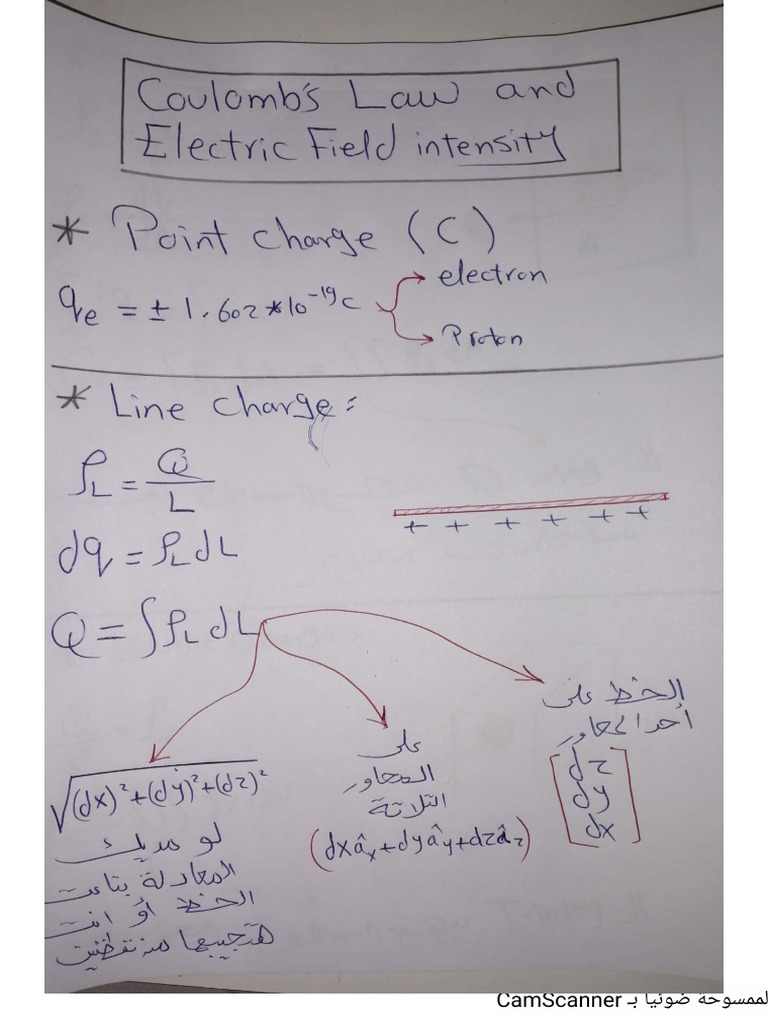 Coulomb's Law and
Electric Field intensity
* Point charge (C)
qe = ± 1.602 *10⁻¹⁹c
electron
Proton
* Line charge:
ρL = Q/L
dq = ρL dL
+ + + + + +
Q = ∫ρL dL
√(dx)²+(dy)²+(dz)²
لو مديك
المعادلة بتاعت
الخط أو انت
هتجيبها من نقطتين
على
المحاور
الثلاثة
(dxâx+dyây+dzâz)
الخط على
أحد المحاور
[dz
dy
dx]
لممسوحة ضوئيا بـ CamScanner